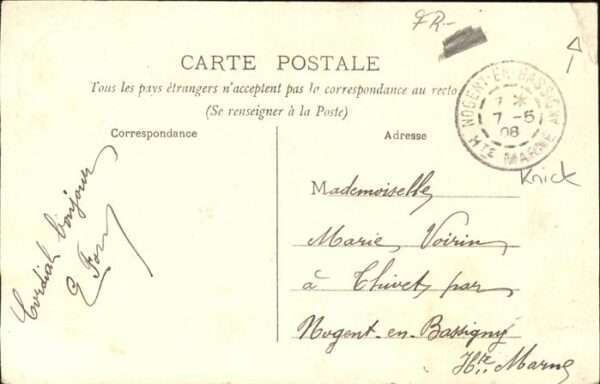 FR-
CARTE POSTALE
Tous les pays étrangers n'acceptent pas la correspondance au recto
(Se renseigner à la Poste)
NOGENT-EN-BASSIGNY
7 -5
08
HTE MARNE
Correspondance
Adresse
Knick
Cordial bonjour
Mademoiselle
Marie Voirin
à Thivet par
Nogent-en-Bassigny
Hte Marne